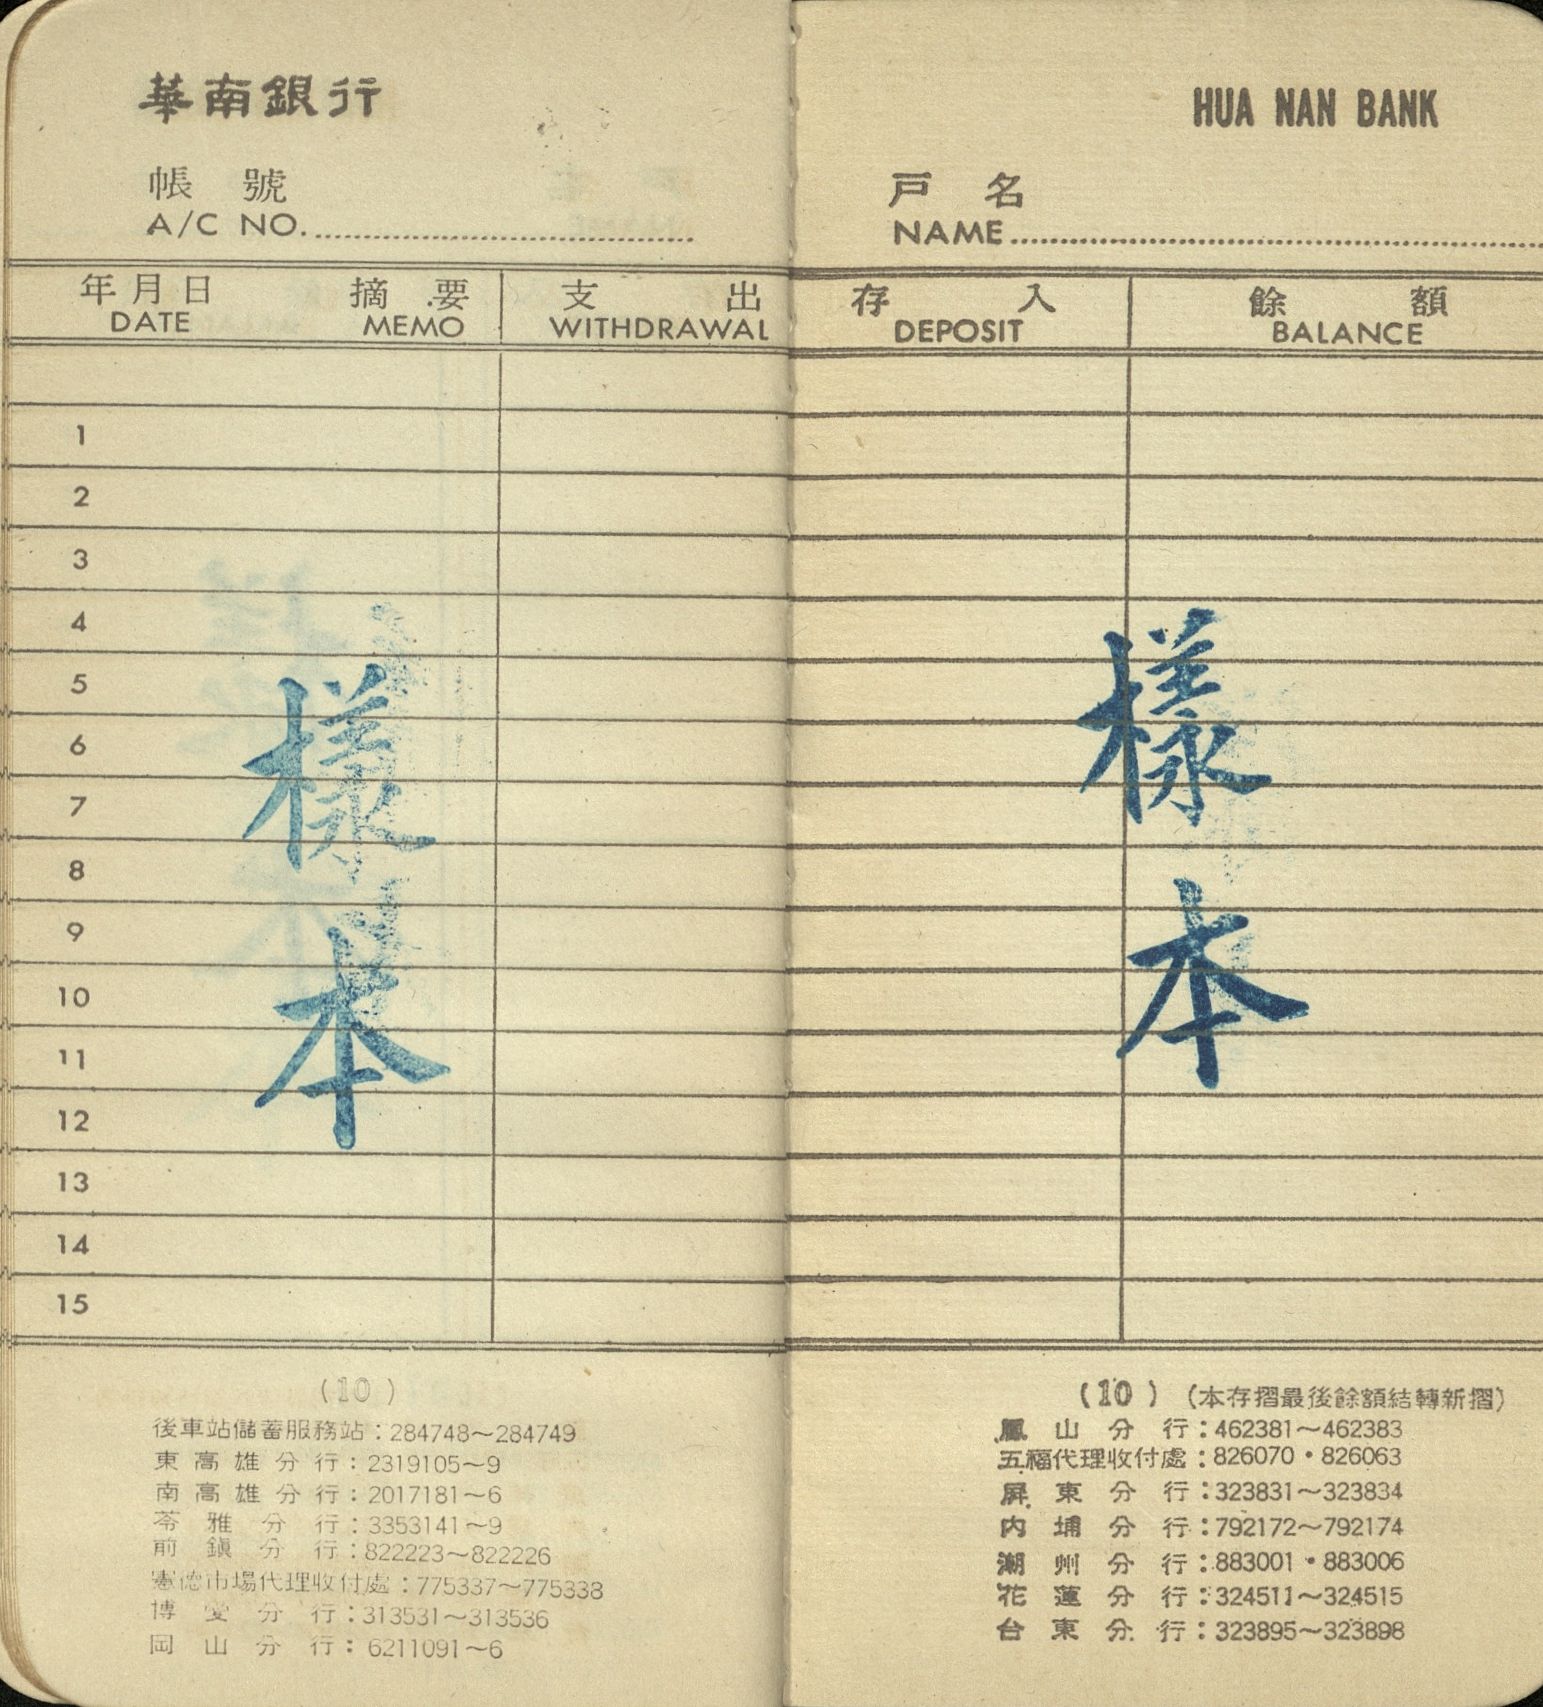 華南銀行
帳 號
A/C NO.
年月日 摘 要 支 出
DATE MEMO WITHDRAWAL
1
2
3
4
5
6
7
8
9
10
11
12
13
14
15
樣本
(10)
後車站儲蓄服務站：284748～284749
東高雄分行：2319105～9
南高雄分行：2017181～6
苓雅分行：3353141～9
前鎮分行：822223～822226
憲德市場代理收付處：775337～775338
博愛分行：313531～313536
岡山分行：6211091～6
HUA NAN BANK
戶 名
NAME
存 入 餘 額
DEPOSIT BALANCE
樣本
(10) (本存摺最後餘額結轉新摺)
鳳山分行：462381～462383
五福代理收付處：826070・826063
屏東分行：323831～323834
內埔分行：792172～792174
潮州分行：883001・883006
花蓮分行：324511～324515
台東分行：323895～323898